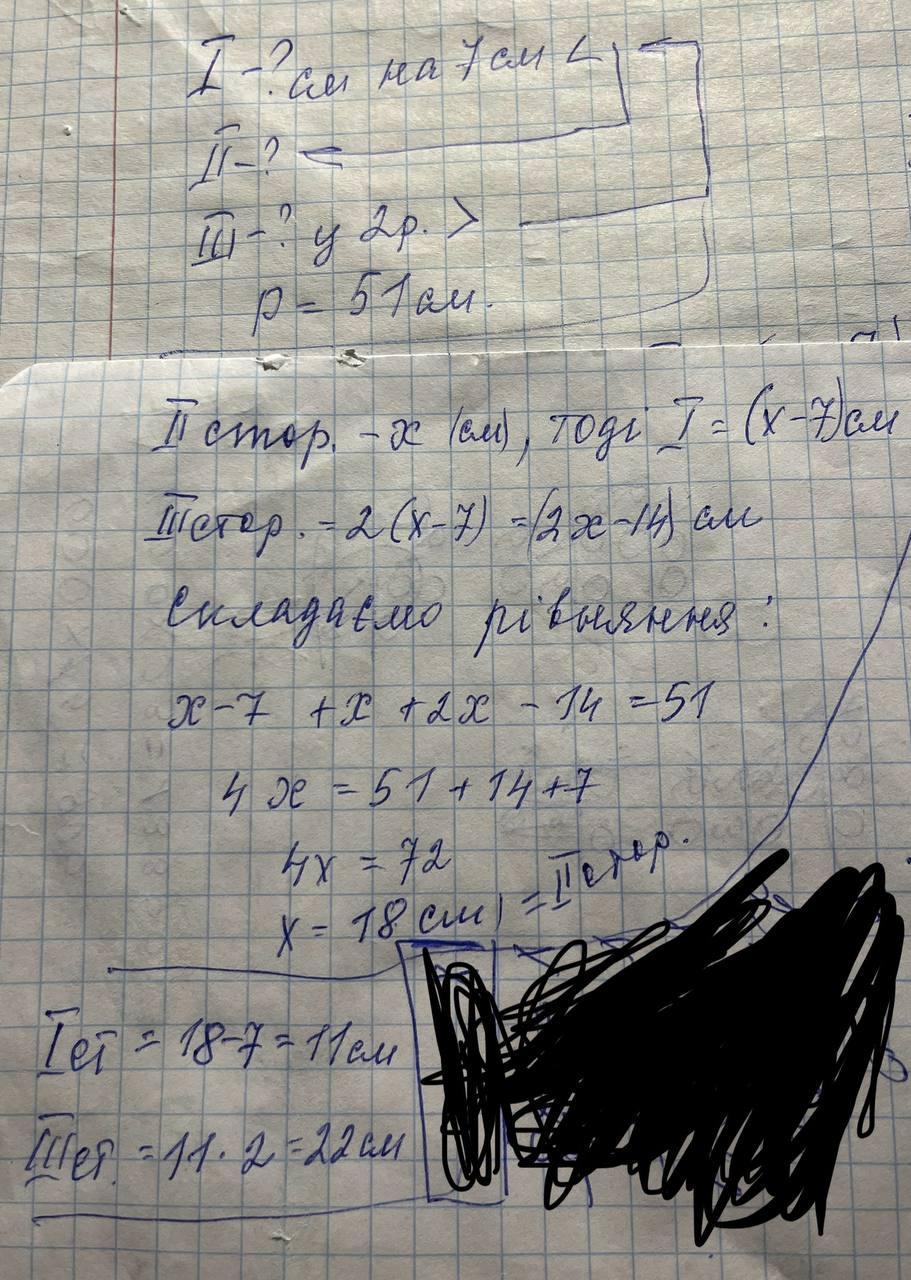 I -? см на 7 см <
II -?
III -? у 2р. >
P = 51 см.
II стор. - x (см), тоді I = (x-7)см
III стор. = 2(x-7) = (2x-14) см
Складаємо рівняння:
x-7 +x +2x -14 =51
4x = 51+14+7
4x = 72
x = 18 см) = II стор.
I ст = 18-7=11см
III ст. =11·2=22см